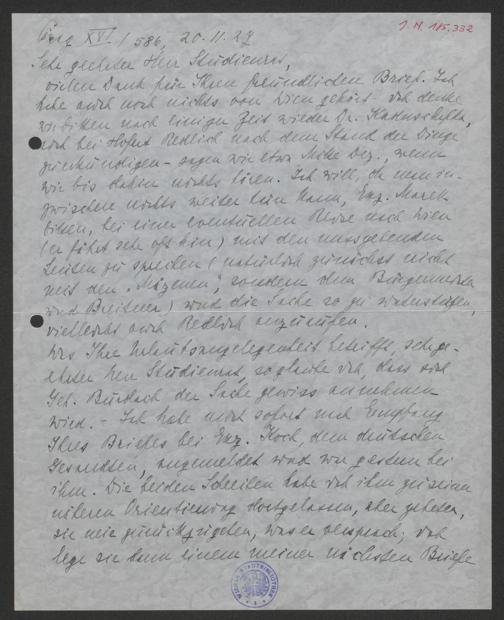 I.N. 185.332
Prag XVI. / 586, 20.11.27
Sehr geehrter Herr Studienrat,
vielen Dank für Ihren freundlichen Brief. Ich
habe auch noch nichts von Wien gehört - ich denke
wir bitten nach einiger Zeit wieder Dr. Katuschitz,
sich bei Hofrat Redlich nach dem Stand der Dinge
zu erkundigen - sagen wir etwa Mitte Dez., wenn
wir bis dahin nichts hören. Ich will, da man in-
zwischen nichts weiter tun kann, Exz. Marek
bitten, bei einer eventuellen Reise nach Wien
(er fährt sehr oft hin) mit den massgebenden
Leuten zu sprechen (natürlich zunächst nicht
mit den "Mäzenen", sondern dem Bürgermeister
und Breitner) und die Sache so zu unterstützen,
vielleicht auch Redlich anzurufen.
Was Ihre Urlaubsangelegenheit betrifft, sehr ge-
ehrter Herr Studienrat, so glaube ich, dass sich
Geh. Burdach der Sache gewiss annehmen
wird. - Ich habe mich sofort nach Empfang
Ihres Briefes bei Exz. Koch, dem deutschen
Gesandten, angemeldet und war gestern bei
ihm. Die beiden Schreiben habe ich ihm zu seiner
näheren Orientierung dortgelassen, aber gebeten,
sie mir zurückzugeben, was er versprach; ich
lege sie dann einem meiner nächsten Briefe